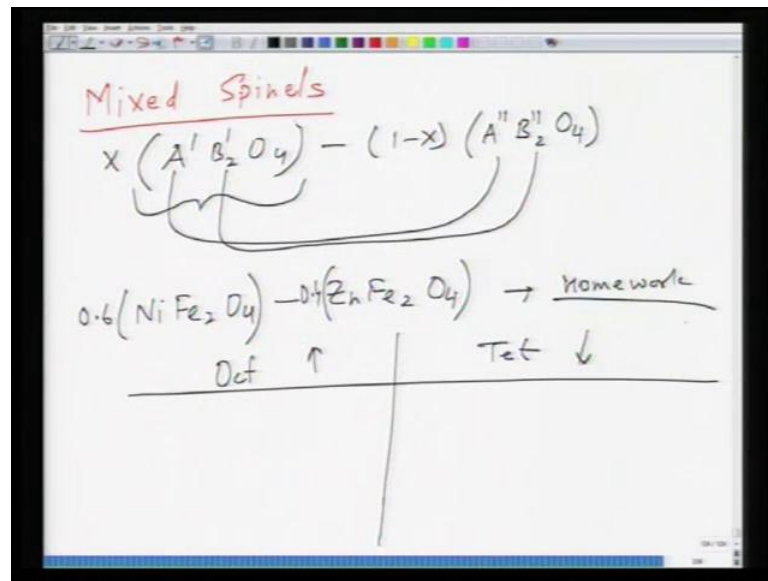 Mixed Spinels
x (A' B'₂ O₄) — (1-x) (A'' B''₂ O₄)
0.6(Ni Fe₂ O₄) — 0.4(Zn Fe₂ O₄) → Homework
Oct ↑ Tet ↓